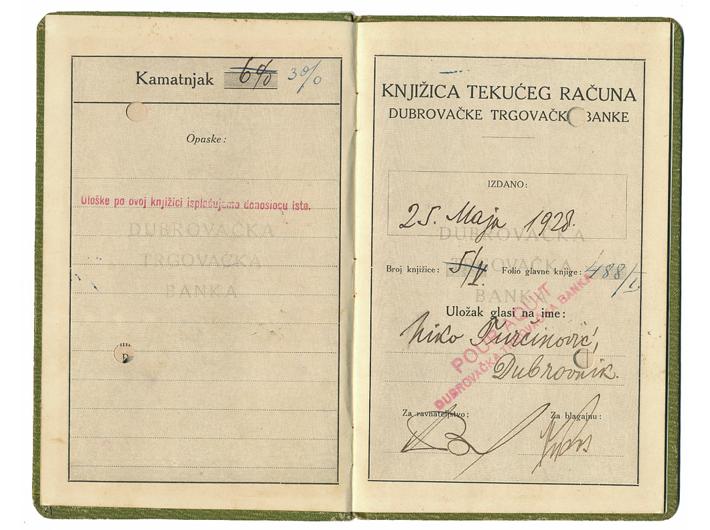 Kamatnjak 6% 3%
Opaske:
Uloške po ovoj knjižici isplaćujemo donosiocu iste.
DUBROVAČKA
TRGOVAČKA
BANKA
KNJIŽICA TEKUĆEG RAČUNA
DUBROVAČKE TRGOVAČKE BANKE
IZDANO:
25. Maja 1928.
DUBROVAČKA
TRGOVAČKA
BANKA
Broj knjižice: 5/ Folio glavne knjige: 488/I
Uložak glasi na ime:
Niko Purčinović,
Dubrovnik.
DUBROVAČKA TRGOVAČKA BANKA
Za ravnateljstvo: Za blagajnu: